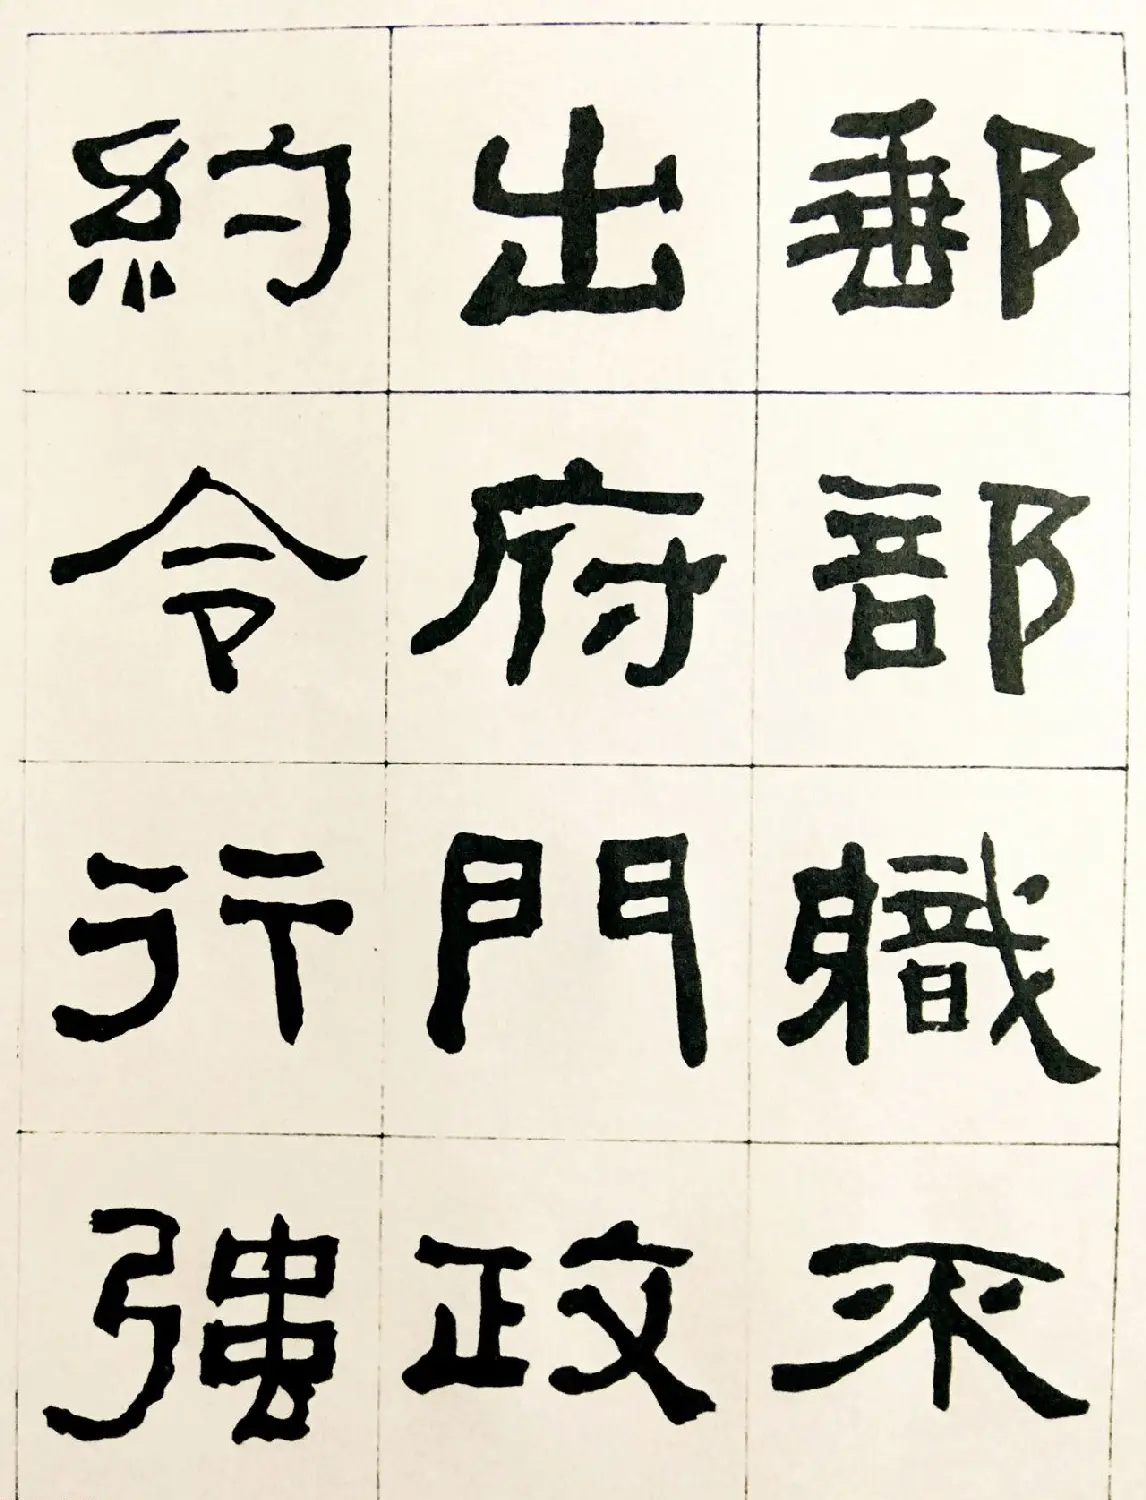 郵部軄不
出府門政
約令行強